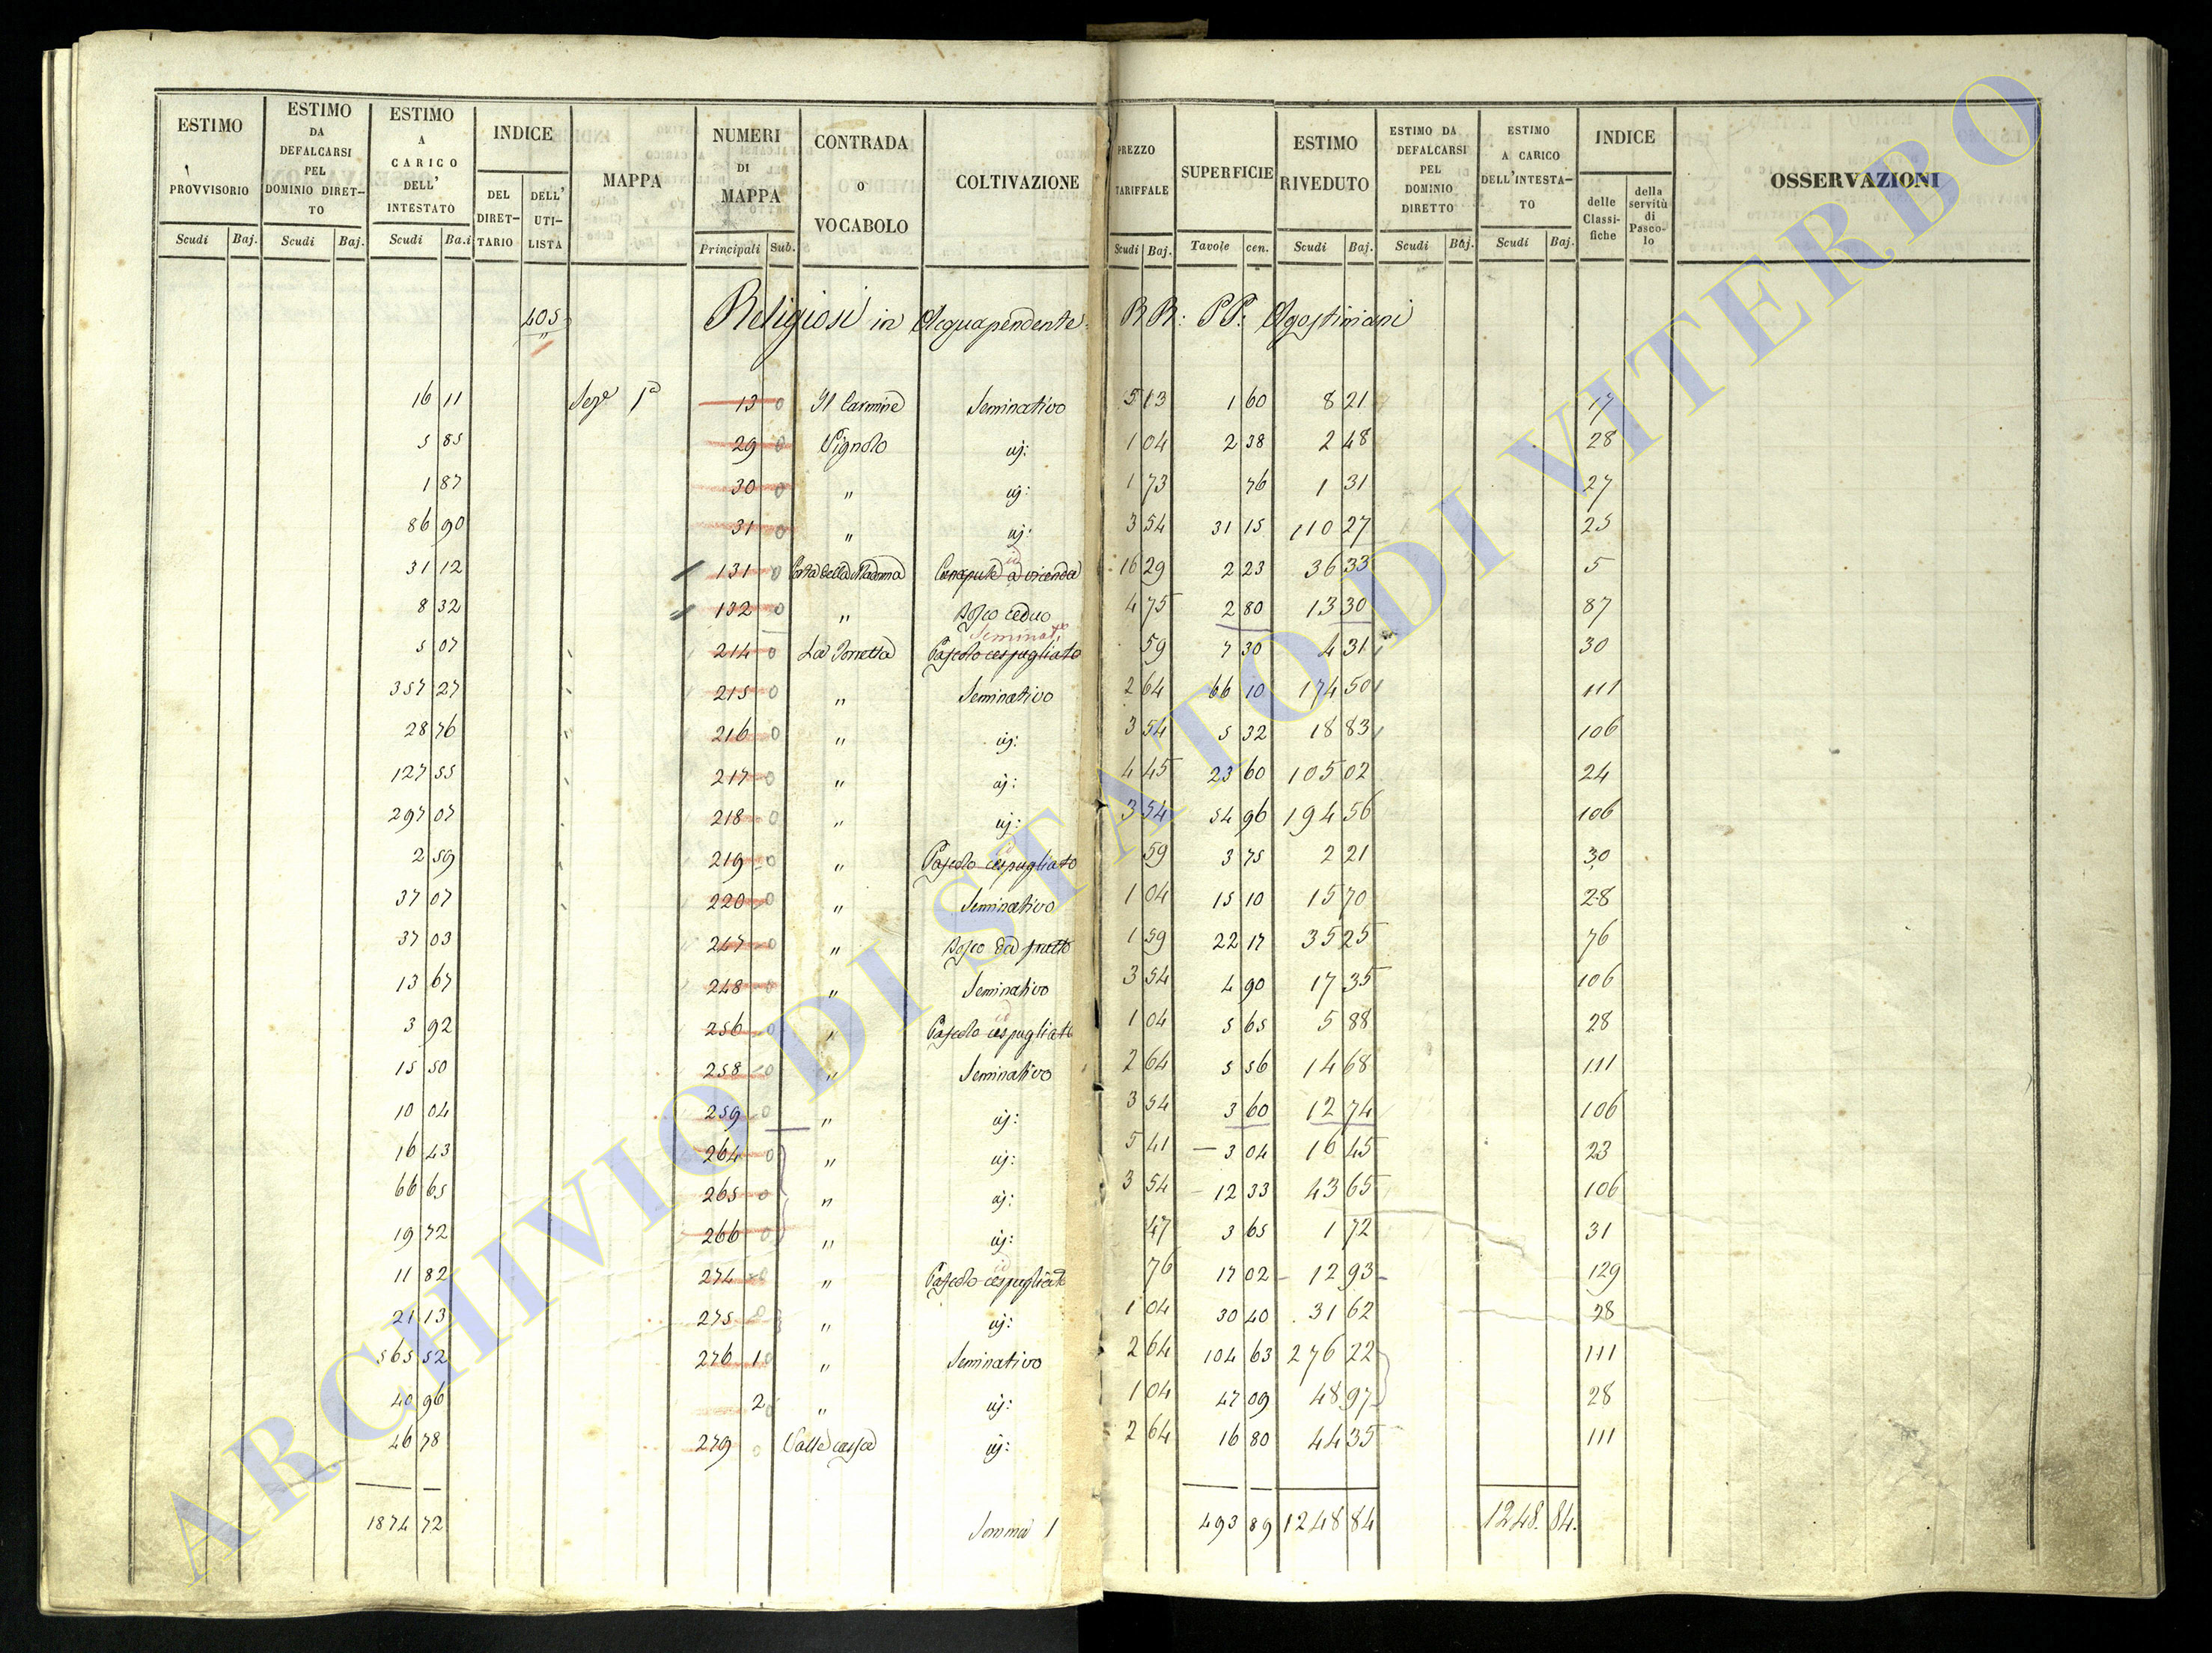 ESTIMO PROVVISORIO Scudi Baj.
ESTIMO DA DEFALCARSI PEL DOMINIO DIRET-TO Scudi Baj.
ESTIMO A CARICO DELL' INTESTATO Scudi Ba.i
INDICE DEL DIRET-TARIO DELL' UTI-LISTA
MAPPA
NUMERI DI MAPPA Principali Sub.
CONTRADA o VOCABOLO
COLTIVAZIONE
PREZZO TARIFFALE Scudi Baj.
SUPERFICIE Tavole cen.
ESTIMO RIVEDUTO Scudi Baj.
ESTIMO DA DEFALCARSI PEL DOMINIO DIRETTO Scudi Baj.
ESTIMO A CARICO DELL'INTESTA-TO Scudi Baj.
INDICE delle Classi-fiche della servitù di Pasco-lo
OSSERVAZIONI
405 Religiosi in Acquapendente RR: PP: Agostiniani
16 11 Sez.e 1a 13 0 Il Carmine Seminativo 5 13 1 60 8 21 17
5 85 29 0 Vignolo id: 1 04 2 38 2 48 28
1 87 30 0 " id: 1 73 76 1 31 27
86 90 31 0 " id: 3 54 31 15 110 27 25
31 12 131 0 Porta della Madonna Canapule a vicenda id 16 29 2 23 36 33 5
8 32 132 0 " Bosco ceduo 4 75 2 80 13 30 87
5 07 214 0 La Torretta Pascolo cespugliato Seminat.vo 59 7 30 4 31 30
357 27 215 0 " Seminativo 2 64 66 10 174 50 111
28 76 216 0 " id: 3 54 5 32 18 83 106
127 55 217 0 " id: 4 45 23 60 105 02 24
297 07 218 0 " id: 3 54 54 96 194 56 106
2 59 219 0 " Pascolo cespugliato id 59 3 75 2 21 30
37 07 220 0 " Seminativo 1 04 15 10 15 70 28
37 03 247 0 " Bosco da frutto 1 59 22 17 35 25 76
13 67 248 0 " Seminativo 3 54 4 90 17 35 106
3 92 256 0 " Pascolo cespugliato id 1 04 5 65 5 88 28
15 50 258 0 " Seminativo 2 64 5 56 14 68 111
10 04 259 0 " id: 3 54 3 60 12 74 106
16 43 264 0 " id: 5 41 3 04 16 45 23
66 65 265 0 " id: 3 54 12 33 43 65 106
19 72 266 0 " id: 47 3 65 1 72 31
11 82 274 0 " Pascolo cespugliato id 76 17 02 12 93 129
21 13 275 0 " id: 1 04 30 40 31 62 28
565 52 276 1 0 " Seminativo 2 64 104 63 276 22 111
40 96 2 0 " id: 1 04 47 09 48 97 28
46 78 279 0 id: 2 64 16 80 44 35 111
1874 72 Somma 1 493 89 1248 84 1248. 84.
ARCHIVIO DI STATO DI VITERBO